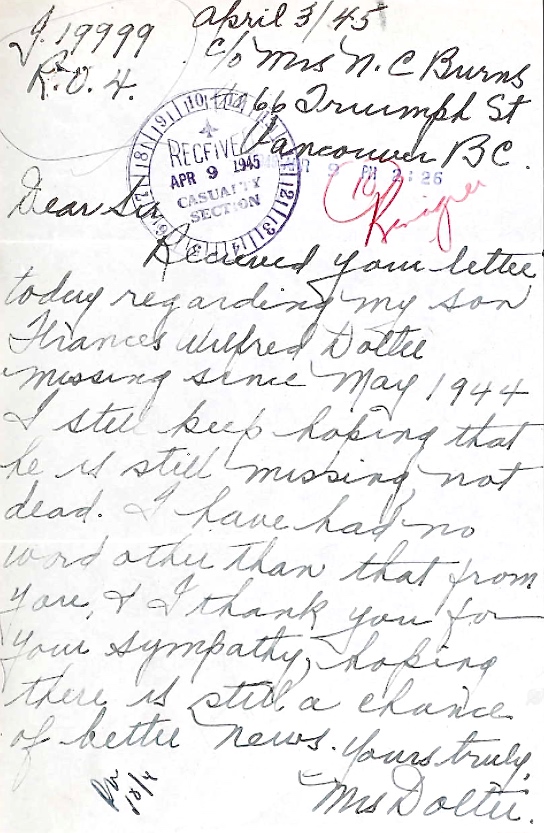 J.19999
R.O.4.
April 3/45
c/o Mrs N.C Burns
66 Triumph St
Vancouver B.C.
RECEIVED
APR 9 1945
CASUALTY
SECTION
9 PM 2:26
Dear Sir
Recieved your letter
today regarding my son
Frances Wilfred Doltee
missing since May 1944
I still keep hoping that
he is still missing not
dead. I have had no
word other than that from
you, & I thank you for
your sympathy, hoping
there is still a chance
of better news. Yours truly,
Mrs Doltee.